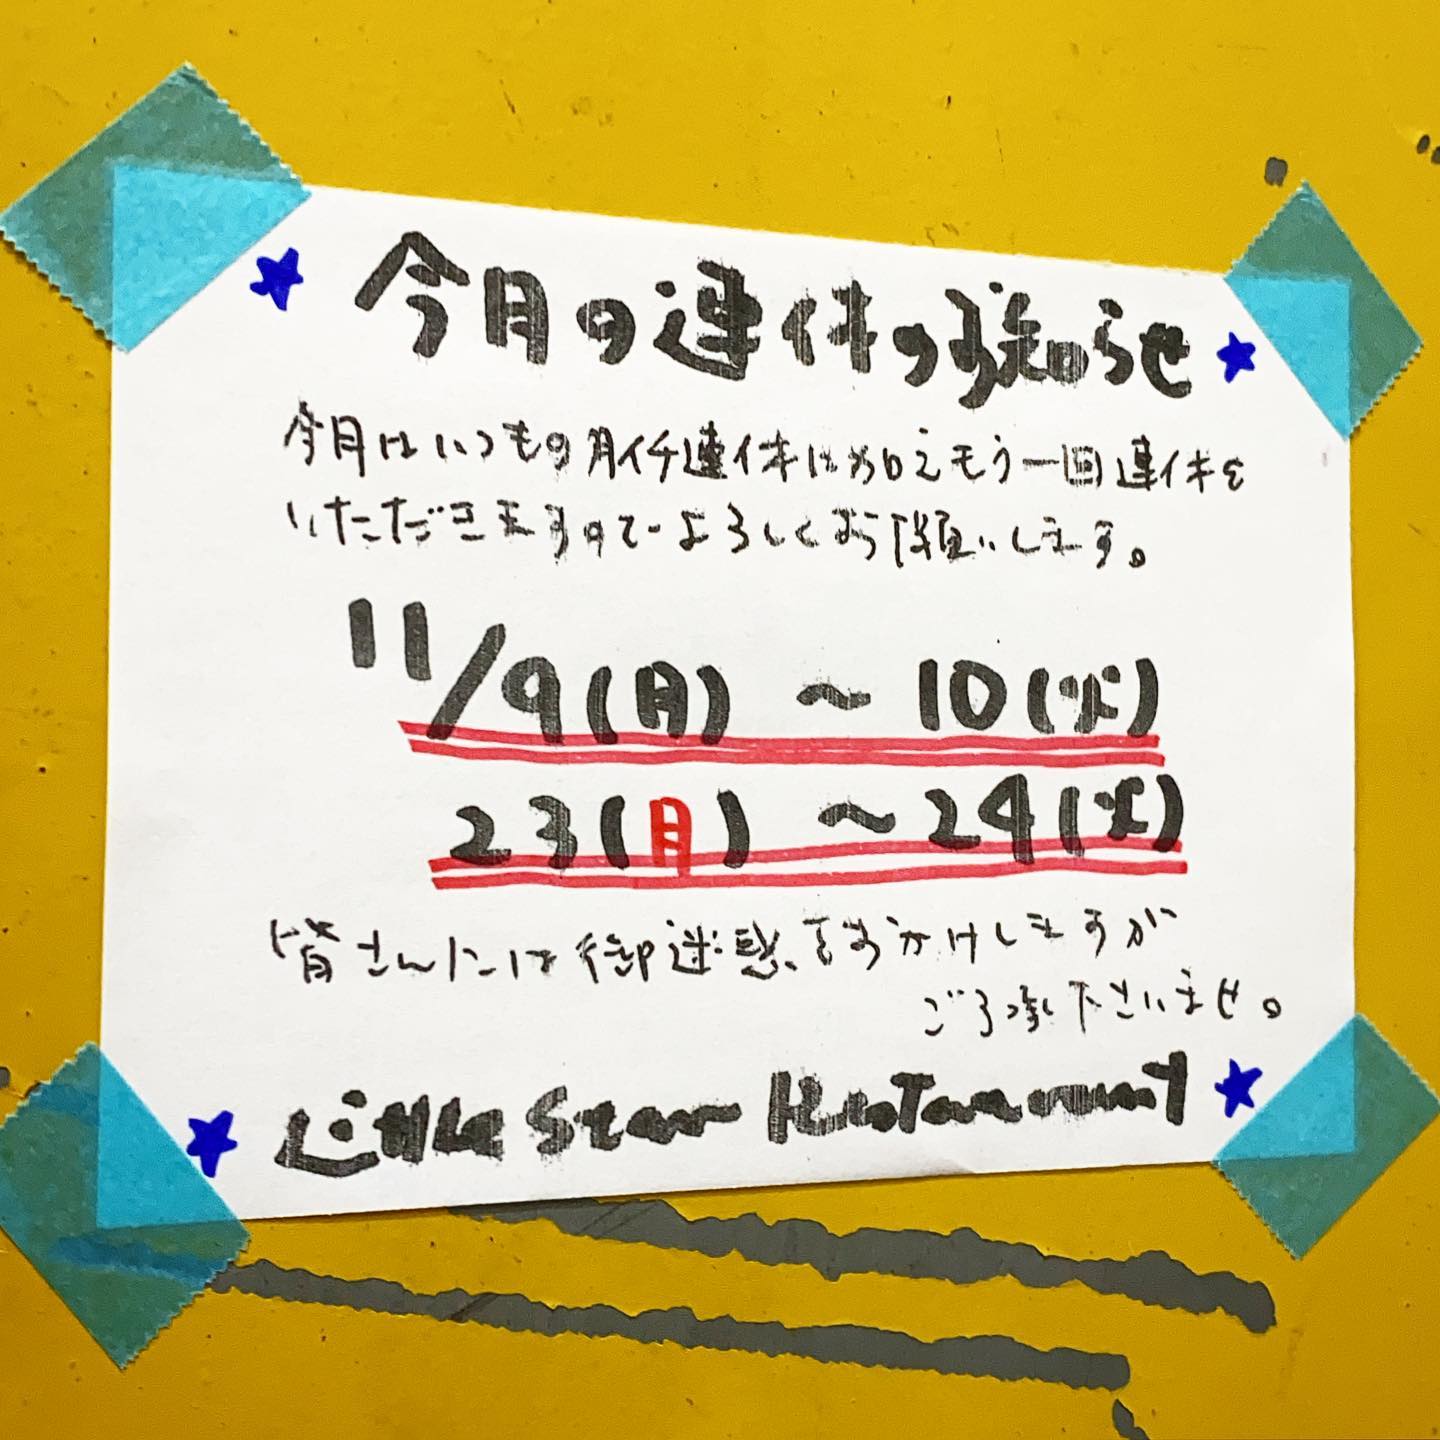 今月の連休のお知らせ
今月はいつもの月イチ連休に加えもう一回連休を
いただきますのでよろしくお願いします。
11/9(月) ～ 10(火)
23(月) ～ 24(火)
皆さんには御迷惑をおかけしますが
ご了承下さいませ。
Little Star Restaurant